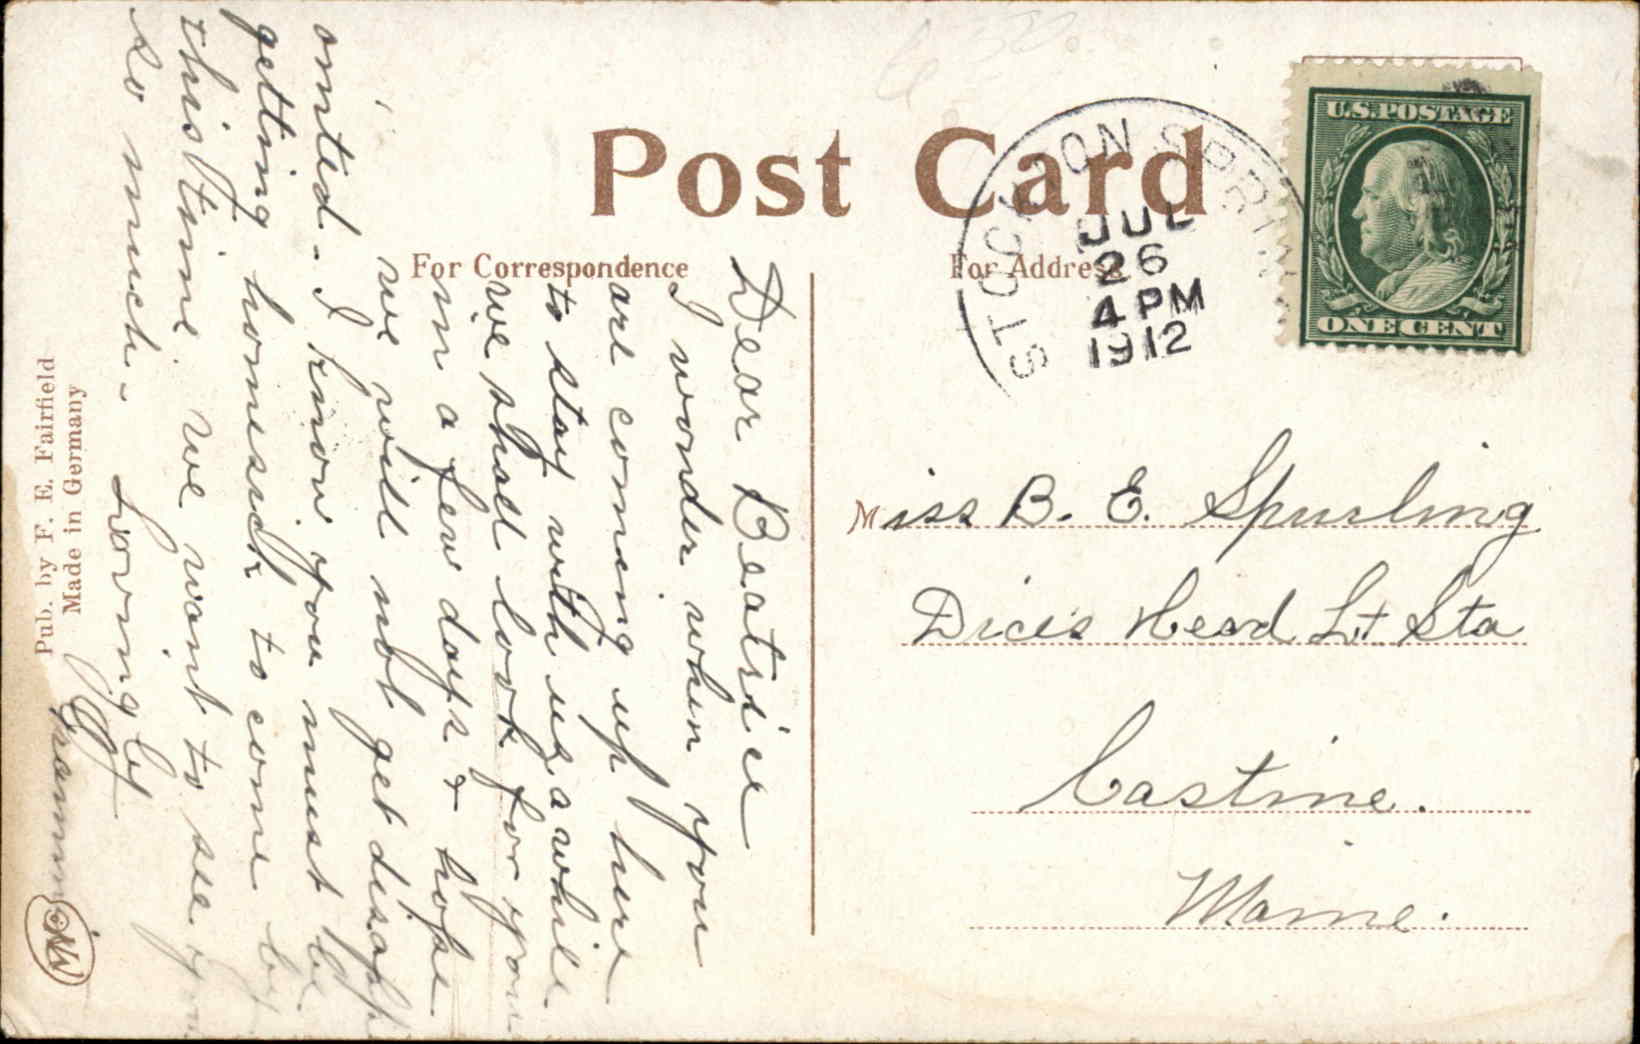 Post Card
For Correspondence
For Address
STOCKTON SPRIN
JUL
26
4 PM
1912
U.S. POSTAGE
ONE CENT
Dear Beatrice
I wonder when you
are coming up here
to stay with us a while
we shall look for you
in a few days & hope
we will not get disapp
ointed - I know you must be
getting homesick to come by
this time. We want to see you
so much - Lovingly
Grammi
Miss B. E. Spurling
Dice's Head Lt Sta
Castine.
Maine.
Pub. by F. E. Fairfield
Made in Germany